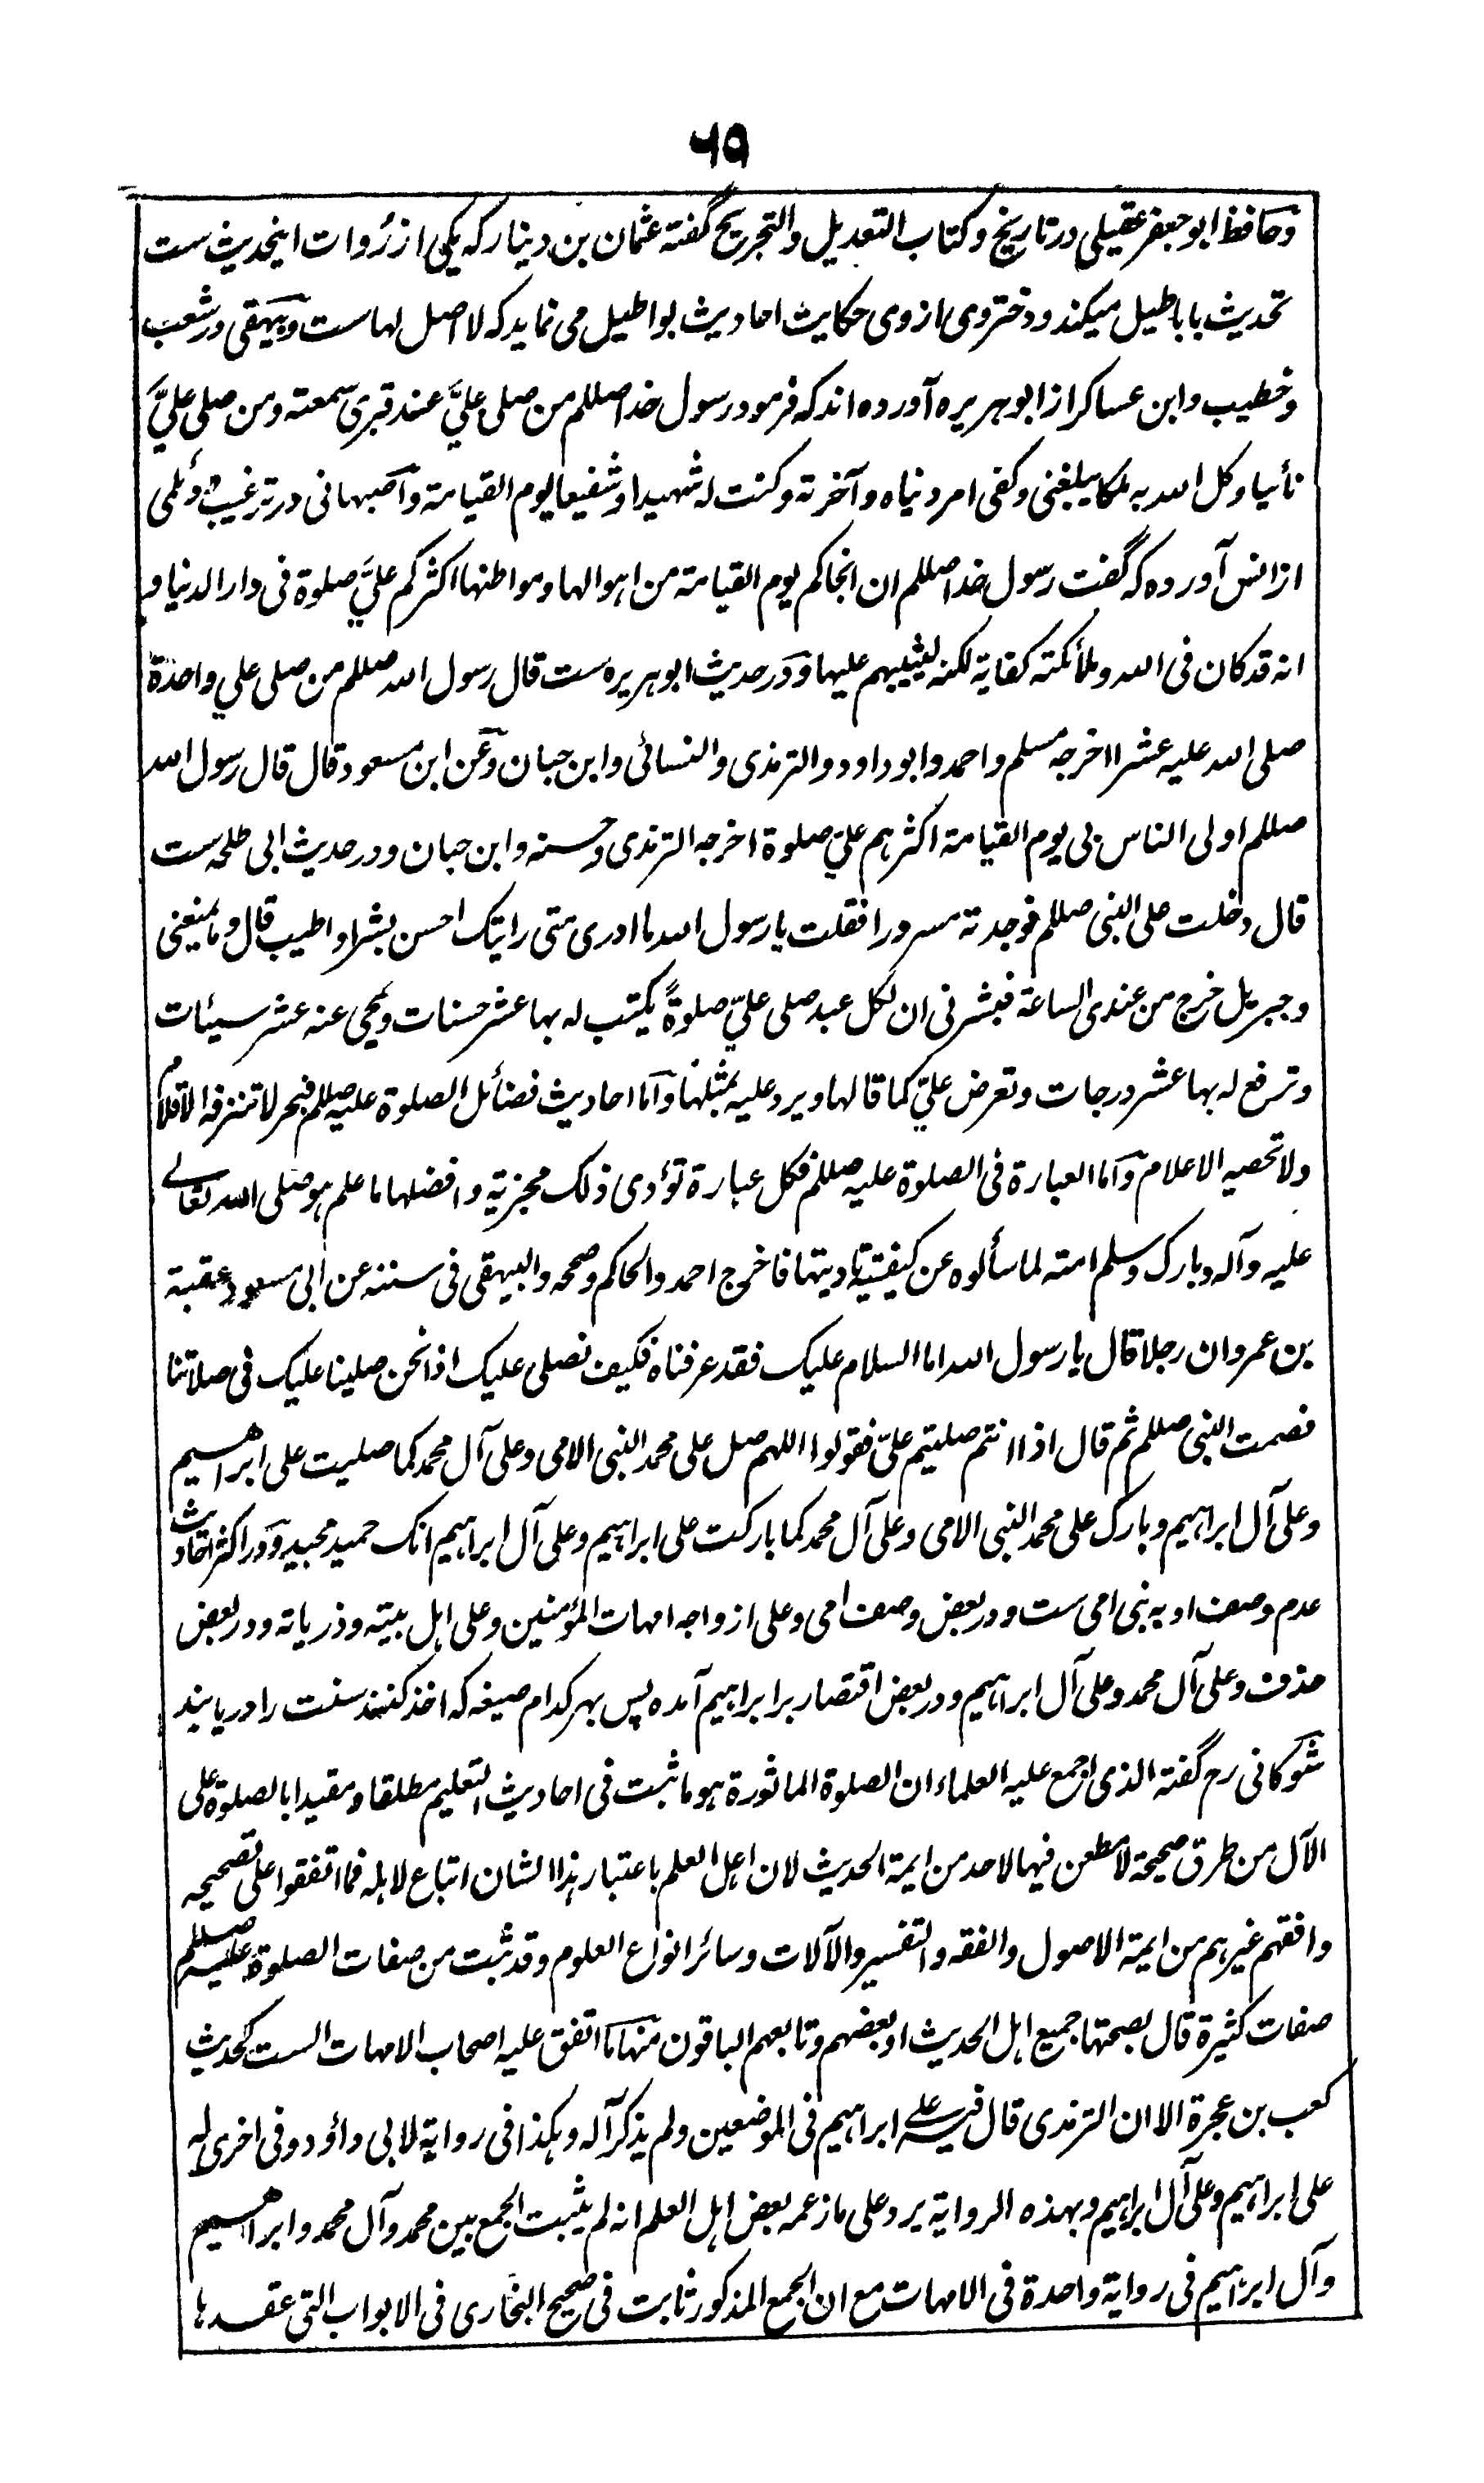 ٦٥
وحافظ ابو جعفر عقیلی در تاریخ و کتاب التعدیل والتجریح گفته عثمان بن دینار که یکی از رُوات اینحدیث ست
تحدیث باباطیل میکند و دختر وی از وی حکایت احادیث بواطیل می نماید که لا اصل لهاست و بیهقی در شعب
و خطیب و ابن عساکر از ابو هریره آورده اند که فرمود رسول خدا صللم من صلی علیَّ عند قبری سمعته ومن صلی علیَّ
نأیا وکل الله به ملکا یبلغنی وکفی امر دنیاه وآخرته وکنت له شهیدا وشفیعا یوم القیامة واصبهانی در ترغیب و دُیلمی
از انس آورده که گفت رسول خدا صللم ان انجاکم یوم القیامة من اهوالها ومواطنها اکثرکم علیَّ صلوة فی دار الدنیا و
انه قد کان فی الله وملائکته کفایة لکنه لیثیبهم علیها و در حدیث ابوهریره ست قال رسول الله صللم من صلی علي واحدة
صلی الله علیه عشرا اخرجه مسلم واحمد وابو داود والترمذی والنسائی وابن حبان وعن ابن مسعود قال قال رسول الله
صللم اولی الناس بی یوم القیامة اکثرهم علیّ صلوة اخرجه الترمذی وحسنه وابن حبان و در حدیث ابی طلحه ست
قال دخلت علی النبی صللم فوجدته مسرورا فقلت یا رسول الله ما ادری متی رایتک احسن بشرا و اطیب قال وما یمنعنی
وجبریل خرج من عندی الساعة فبشرنی ان لکل عبد صلی علیّ صلوةً یکتب له بها عشر حسنات ویمحی عنه عشر سیئات
وترفع له بها عشر درجات وتعرض علیّ کما قالها ویرد علیه بمثلها واما احادیث فضائل الصلوة علیه صللم فبحر لا تنزفه الاقلام
ولا تحصیه الاعلام واما العبارة فی الصلوة علیه صللم فکل عبارة تؤدی ذلک مجزیة وافضلها ما علم هو صلی الله تعالے
علیه وآله وبارک وسلم امته لما سألوه عن کیفیة تادیتها فاخرج احمد والحاکم وصححه والبیهقی فی سننه عن ابی مسعود عقبة
بن عمرو ان رجلا قال یا رسول الله اما السلام علیک فقد عرفناه فکیف نصلی علیک اذا نحن صلینا علیک فی صلاتنا
فصمت النبی صللم ثم قال اذا انتم صلیتم علیّ فقولوا اللهم صل علی محمد النبی الامی وعلی آل محمد کما صلیت علی ابراهیم
وعلی آل ابراهیم وبارک علی محمد النبی الامی وعلی آل محمد کما بارکت علی ابراهیم وعلی آل ابراهیم انک حمید مجید و در اکثر احادیث
عدم وصف او به نبی امی ست و در بعض وصف امی وعلی ازواجه امهات المؤمنین وعلی اهل بیته وذریاته و در بعض
حذف وعلی آل محمد وعلی آل ابراهیم و در بعض اقتصار بر ابراهیم آمده پس بهر کدام صیغه که اخذ کنند سنت را دریابند
شوکانی رح گفته الذی اجمع علیه العلماء ان الصلوة الماثورة هو ما ثبت فی احادیث التعلیم مطلقا ومقیدا بالصلوة علی
الآل من طرق صحیحة لا مطعن فیها لاحد من ایمة الحدیث لان اهل العلم باعتبار هذا الشان اتباع لاهله فما اتفقوا علی تصحیحه
وافقهم غیرهم من ایمة الاصول والفقه والتفسیر والآلات وسائر انواع العلوم وقد ثبت من صفات الصلوة علیه صللم
صفات کثیرة قال بصحتها جمیع اهل الحدیث او بعضهم وتابعهم الباقون منها ما اتفق علیه اصحاب الامهات الست کحدیث
کعب بن عجرة الا ان الترمذی قال فیه علے ابراهیم فی الموضعین ولم یذکر آله وهکذا فی روایة لابی داؤد وفی اخری له
علی ابراهیم وعلی آل ابراهیم وبهذه الروایة یرد علی ما زعمه بعض اهل العلم انه لم یثبت الجمع بین محمد وآل محمد وابراهیم
وآل ابراهیم فی روایة واحدة فی الامهات مع ان الجمع المذکور ثابت فی صحیح البخاری فی الابواب التی عقدها